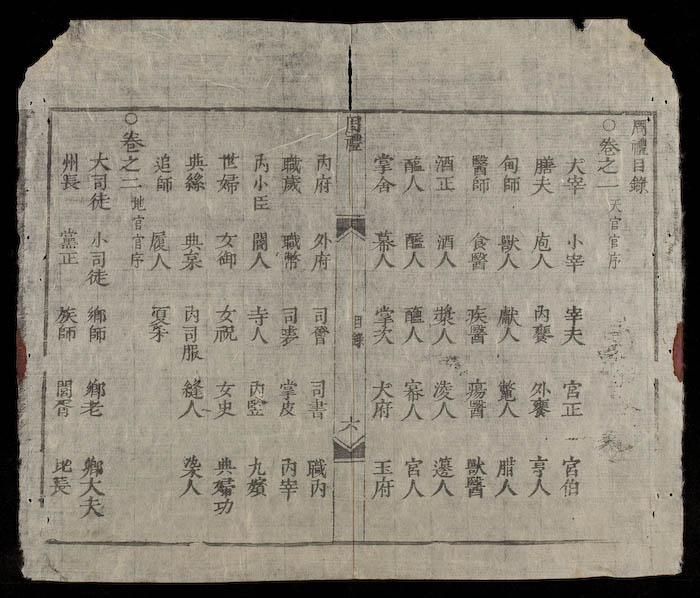 周禮目錄
○卷之一 天官官序
大宰 小宰 宰夫 宮正 宮伯
膳夫 庖人 內饔 外饔 亨人
甸師 獸人 獻人 鱉人 腊人
醫師 食醫 疾醫 瘍醫 獸醫
酒正 酒人 漿人 凌人 籩人
醢人 醯人 鹽人 冪人 宮人
掌舍 幕人 掌次 大府 玉府
周禮 目錄 六
內府 外府 司會 司書 職內
職歲 職幣 司裘 掌皮 內宰
內小臣 閽人 寺人 內豎 九嬪
世婦 女御 女祝 女史 典婦功
典絲 典枲 內司服 縫人 染人
追師 屨人 夏采
○卷之二 地官官序
大司徒 小司徒 鄉師 鄉老 鄉大夫
州長 黨正 族師 閭胥 比長